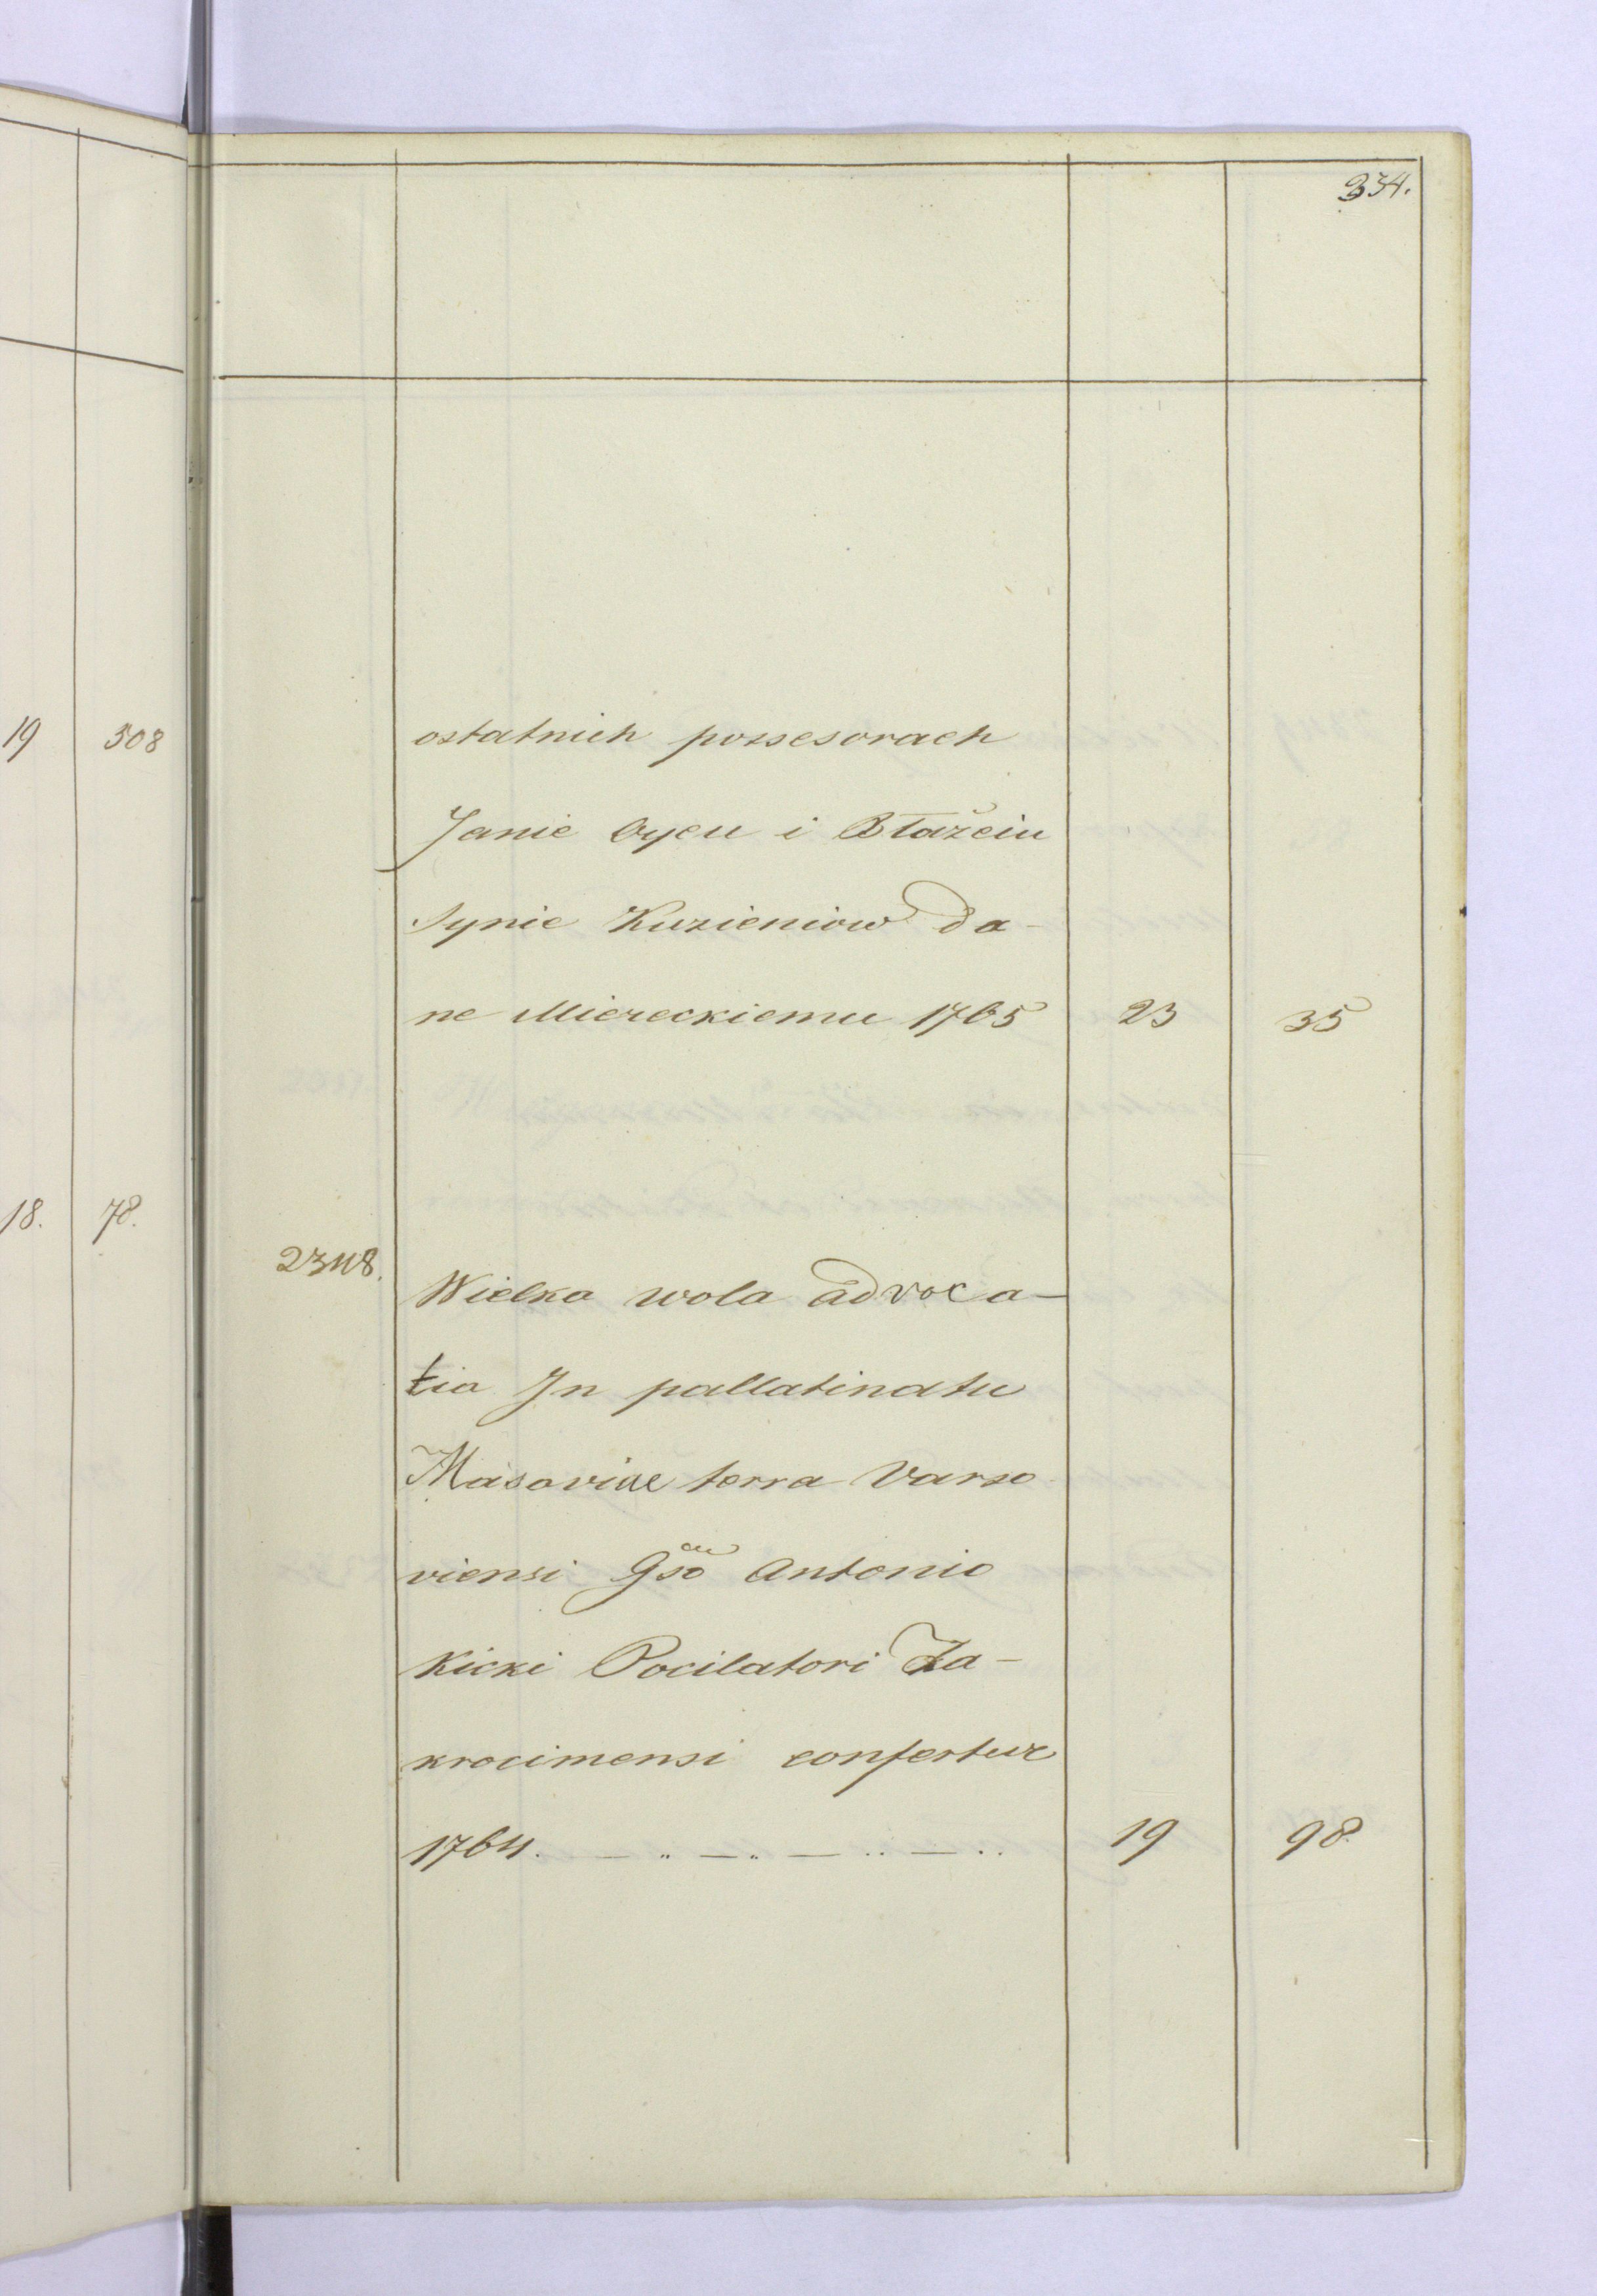 334.
19 508
ostatnich possesorach
Janie Oycu i Błażeiu
Synie Kuzieniow da-
ne Miereckiemu 1765 23 35
18. 78.
2348.
Wielka wola advoca-
tia In pallatinatu
Masoviae terra Varso
viensi Gso Antonio
Kicki Pocilatori Za-
krocimensi confertur
1764. 19 98.